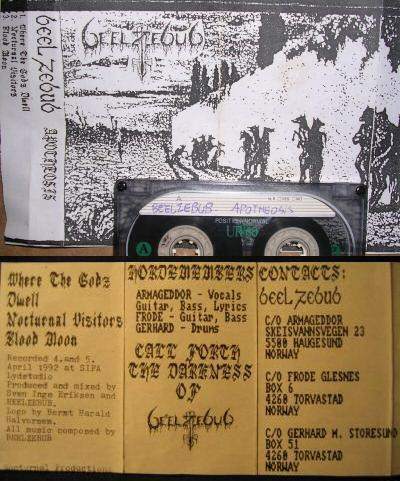 1. Where The Godz Dwell
2. Nocturnal Visitors
3. Blood Moon
BEELZEBUB APOTHEOSIS
BEELZEBUB
BEELZEBUB APOTHEOSIS
POSITION NORMAL
A
UR 60
Where The Godz
Dwell
Nocturnal Visitors
Blood Moon
Recorded 4.and 5.
April 1992 at SIPA
lydstudio
Produced and mixed by
Sven Inge Eriksen and
BEELZEBUB.
Logo by Bernt Harald
Halvorsen.
All music composed by
BEELZEBUB
Nocturnal Productions
HORDEMEMBERS
ARMAGEDDOR - Vocals
Guitar, Bass, Lyrics
FRODE - Guitar, Bass
GERHARD - Drums
CALL FORTH
THE DARKNESS
OF
BEELZEBUB
CONTACTS:
BEELZEBUB
C/O ARMAGEDDOR
SKEISVANNSVEGEN 23
5500 HAUGESUND
NORWAY
C/O FRODE GLESNES
BOX 6
4260 TORVASTAD
NORWAY
C/O GERHARD M. STORESUND
BOX 51
4260 TORVASTAD
NORWAY